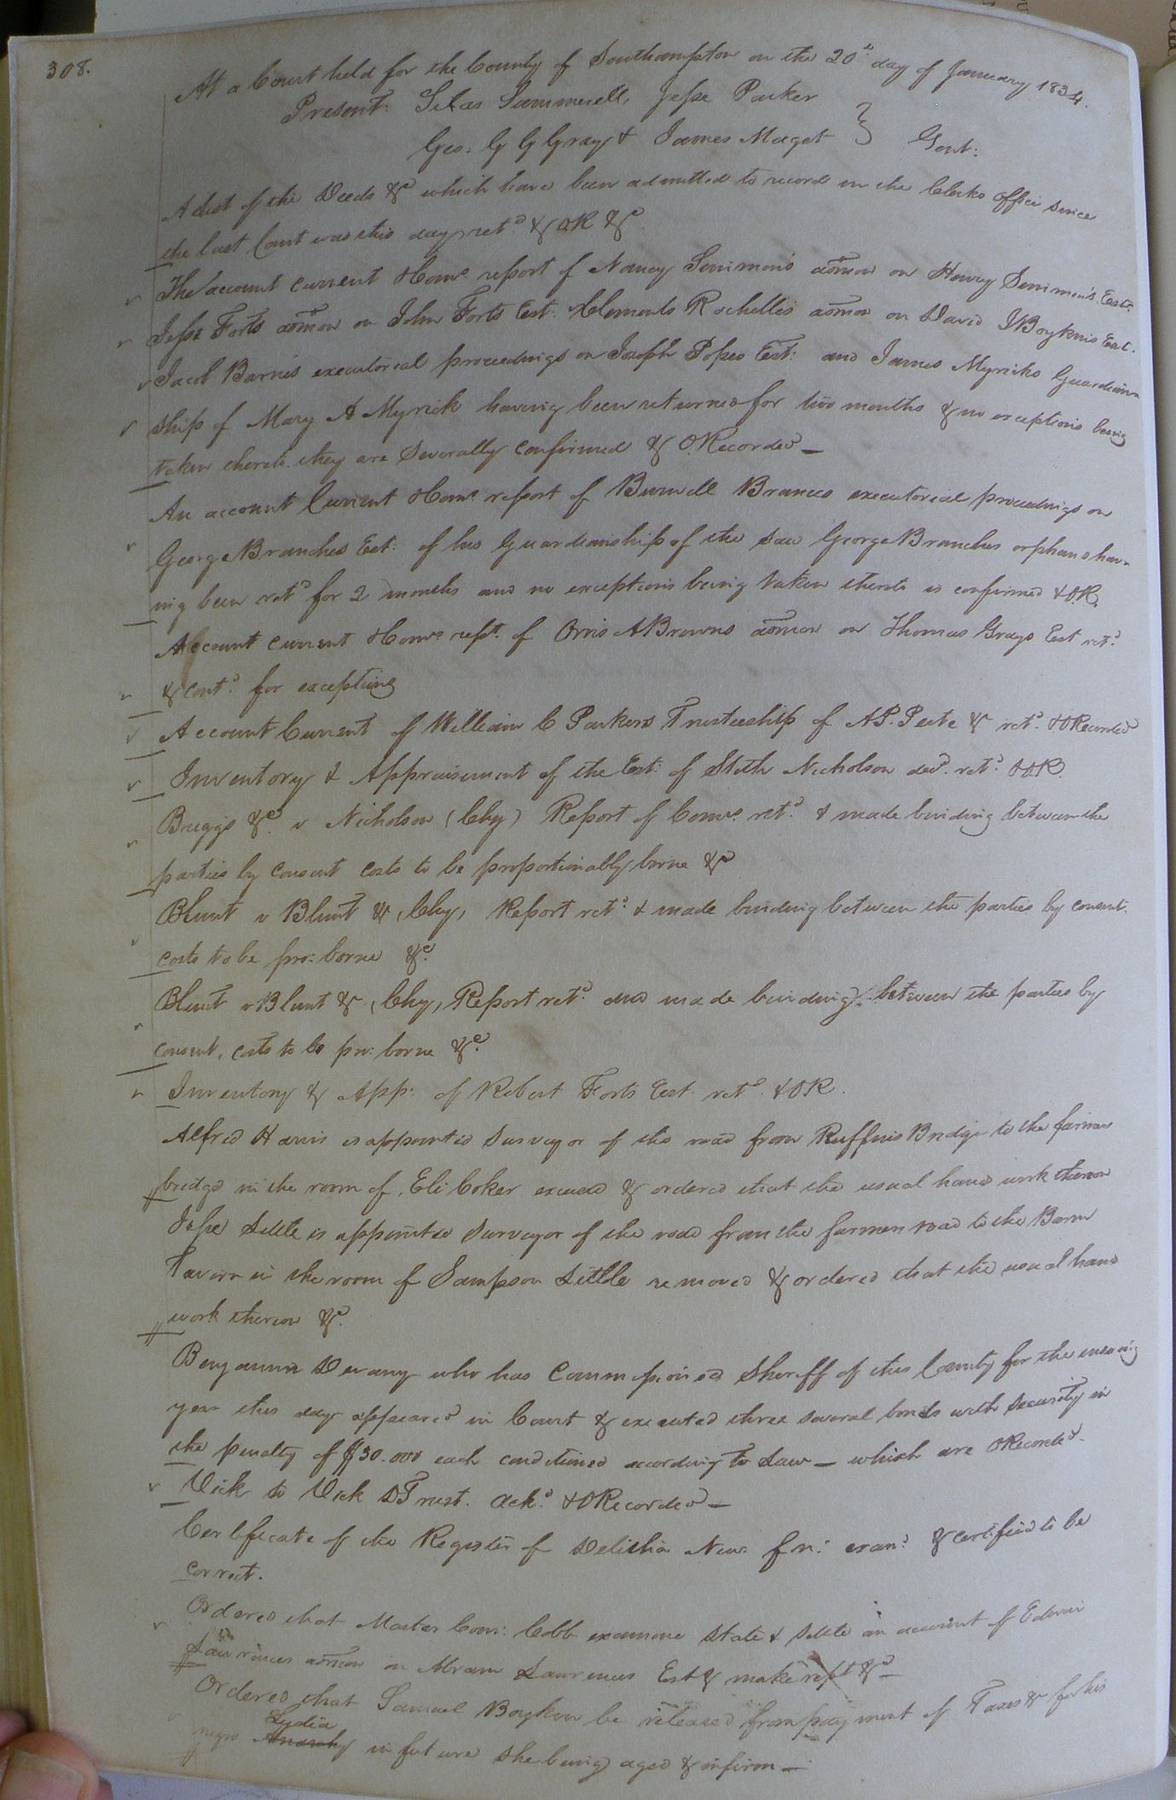 308.
At a Court held for the County of Southampton on the 20th day of January 1834.
Present. Silas Summerell, Jesse Parker
Geo. G G Gray & James Maget } Gent:
A list of the Deeds &c which have been admitted to record in the Clerks office since
the last Court was this day retd & OR &c
The account current & Comrs report of Nancy Simmons admon on Henry Simmons Est.
Jesse Forts admon on John Forts Est. Clements Rochelles admon on David J Boykins Est.
Jacob Barnes executorial proceedings on Joseph Popes Est: and James Myricks Guardian
ship of Mary A Myrick having been returned for two months & no exceptions being
taken thereto they are severally confirmed & O.Recorded —
An account Current & Comrs report of Burwell Branches executorial proceedings on
George Branches Est: of his Guardianship of the said George Branches orphans hav-
ing been retd for 2 months and no exceptions being taken thereto is confirmed & OR.
Account current & Comrs rept. of Orris A Browns admon on Thomas Grays Est retd
& contd for exceptions
Account Current of William C Parkers Trusteeship of A.P. Peete & retd & ORecorded
Inventory & Appraisement of the Est: of Stith Nicholson decd. retd & OR.
Briggs &c v Nicholson (Chy) Report of Comrs. retd & made binding between the
parties by consent costs to be proportionably borne &c
Blunt v Blunt &c (Chy) Report retd & made binding between the parties by consent.
costs to be pro: borne &c.
Blunt v Blunt &c (Chy) Report retd and made binding between the parties by
consent, costs to be pro: borne &c.
Inventory & App: of Robert Forts Est retd. & OR.
Alfred Harris is appointed Surveyor of the road from Ruffins Bridge to the
bridge in the room of Eli Coker excused & ordered that the usual hands work thereon
Jesse Little is appointed Surveyor of the road from the road to the Barn
Tavern in the room of Sampson Little removed & ordered that the usual hands
work thereon &c.
Benjamin Devany who has Commissioned Sheriff of this County for the ensuing
year this day appeared in Court & executed three several bonds with security in
the penalty of $30.000 each conditioned according to Law — which are ORecorded.
Vick to Vick DTrust. ackd & ORecorded —
Certificate of the Register of Delitha New: f n: exand & certified to be
correct.
Ordered that Master Comr: Cobb examine State & settle an account of Edwin
Lawrences admon on Abram Lawrences Est & make rept &c —
Ordered that Samuel Boykin be released from payment of Taxes &c for his
negro Lydia in future she being aged & infirm —